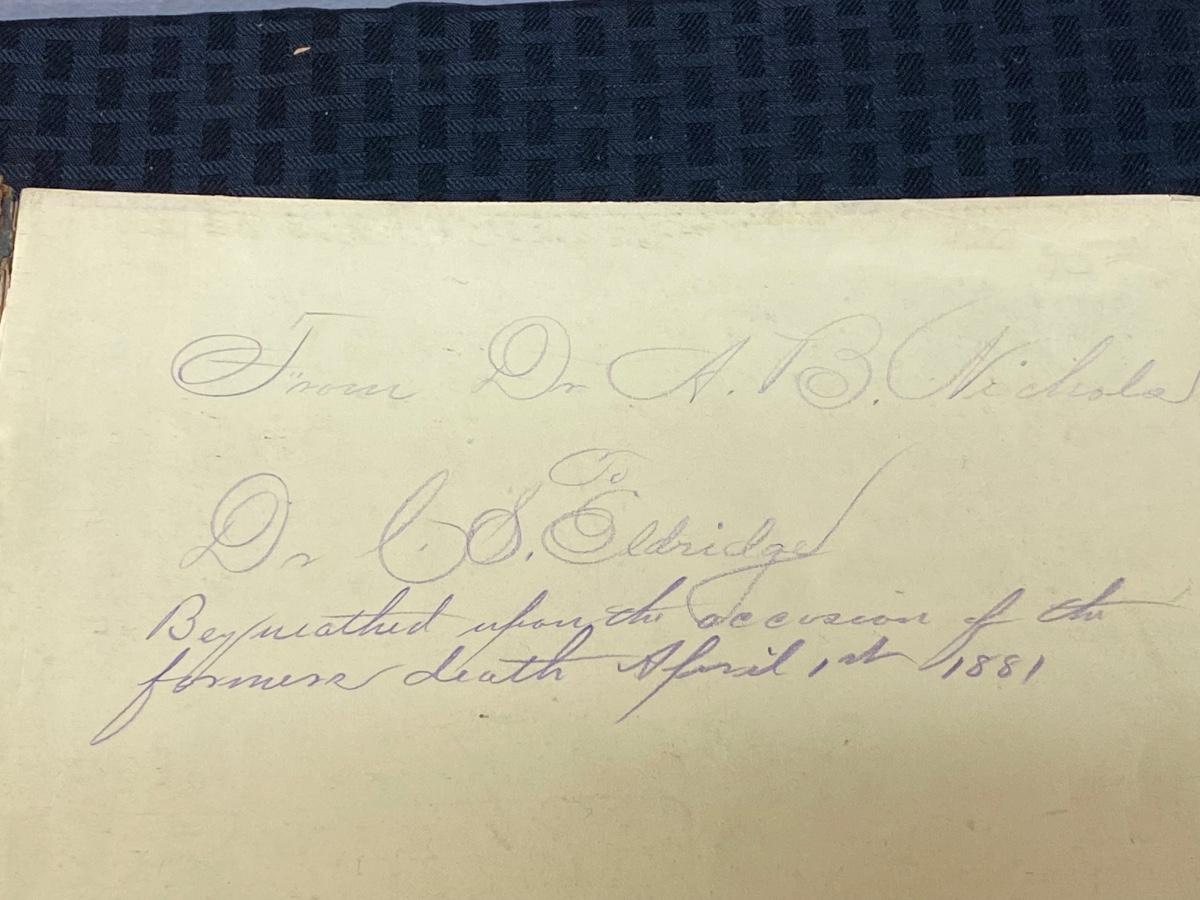 From Dr A. B. Nichols
To
Dr C. S. Eldridge
Bequeathed upon the accosion of the
formers death April 1st 1881